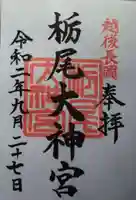 越後長岡
奉拝
栃尾大神宮
令和二年九月二十七日